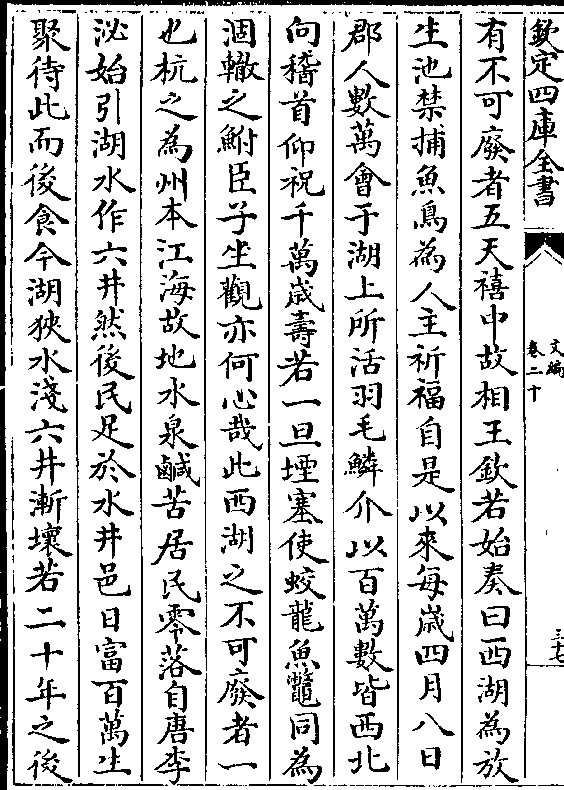 欽定四庫全書
文編
卷二十
三十七
有不可廢者五天禧中故相王欽若始奏曰西湖為放
生池禁捕魚鳥為人主祈福自是以來每歲四月八日
郡人數萬會于湖上所活羽毛鱗介以百萬數皆西北
向稽首仰祝千萬歲壽若一旦堙塞使蛟龍魚鼈同為
涸轍之鮒臣子坐觀亦何心哉此西湖之不可廢者一
也杭之為州本江海故地水泉鹹苦居民零落自唐李
泌始引湖水作六井然後民足於水井邑日富百萬生
聚待此而後食今湖狹水淺六井漸壞若二十年之後